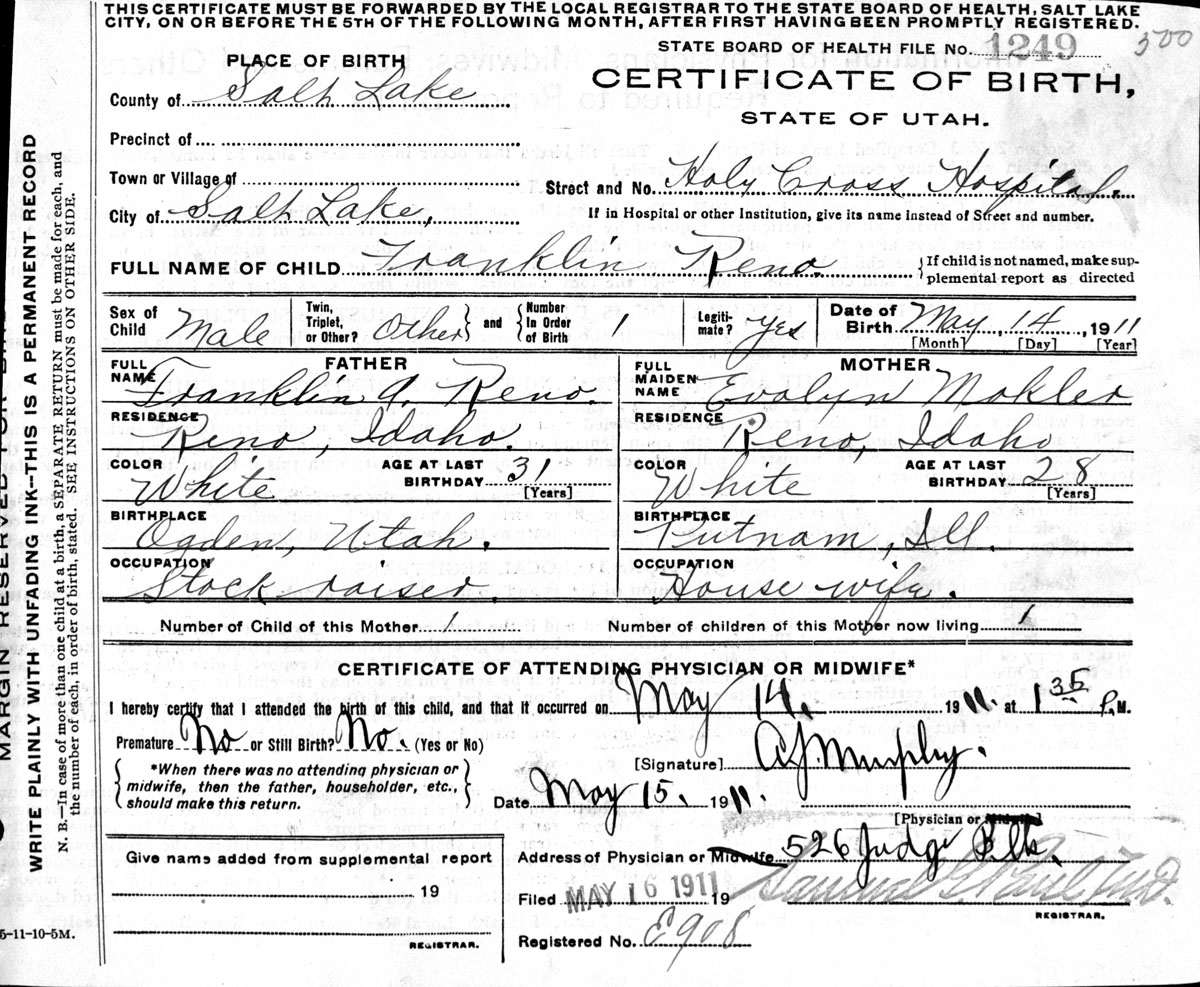 THIS CERTIFICATE MUST BE FORWARDED BY THE LOCAL REGISTRAR TO THE STATE BOARD OF HEALTH, SALT LAKE
CITY, ON OR BEFORE THE 5TH OF THE FOLLOWING MONTH, AFTER FIRST HAVING BEEN PROMPTLY REGISTERED.
STATE BOARD OF HEALTH FILE No. 1249 300
PLACE OF BIRTH
CERTIFICATE OF BIRTH,
County of Salt Lake
STATE OF UTAH.
Precinct of
Town or Village of
Street and No. Holy Cross Hospital.
City of Salt Lake,
If in Hospital or other Institution, give its name instead of Street and number.
FULL NAME OF CHILD Franklin Reno. { If child is not named, make sup-
plemental report as directed
Sex of Child Male
Twin, Triplet, or Other? Other } and { Number In Order of Birth 1
Legiti- mate? Yes
Date of Birth May, 14, 1911
[Month] [Day] [Year]
FATHER
FULL NAME Franklin A. Reno.
RESIDENCE Reno, Idaho.
COLOR White AGE AT LAST BIRTHDAY 31 [Years]
BIRTHPLACE Ogden, Utah.
OCCUPATION Stock raiser.
MOTHER
FULL MAIDEN NAME Evalyn Mokler
RESIDENCE Reno, Idaho
COLOR White AGE AT LAST BIRTHDAY 28 [Years]
BIRTHPLACE Putnam, Ill.
OCCUPATION House wife.
Number of Child of this Mother 1 Number of children of this Mother now living 1
CERTIFICATE OF ATTENDING PHYSICIAN OR MIDWIFE*
I hereby certify that I attended the birth of this child, and that it occurred on May 14, 1911. at 1 35 P.M.
Premature No or Still Birth? No. (Yes or No)
[Signature] A.J. Murphy.
{ *When there was no attending physician or
midwife, then the father, householder, etc.,
should make this return. }
Date May 15. 1911.
[Physician or Midwife]
Give name added from supplemental report
19
REGISTRAR.
Address of Physician or Midwife 526 Judge Blk.
Filed MAY 16 1911 19 Samuel G. Paul, M.D.
REGISTRAR.
Registered No. E908
5-11-10-5M.
MARGIN RESERVED FOR
WRITE PLAINLY WITH UNFADING INK--THIS IS A PERMANENT RECORD
N. B.—In case of more than one child at a birth, a SEPARATE RETURN must be made for each, and
the number of each, in order of birth, stated. SEE INSTRUCTIONS ON OTHER SIDE.